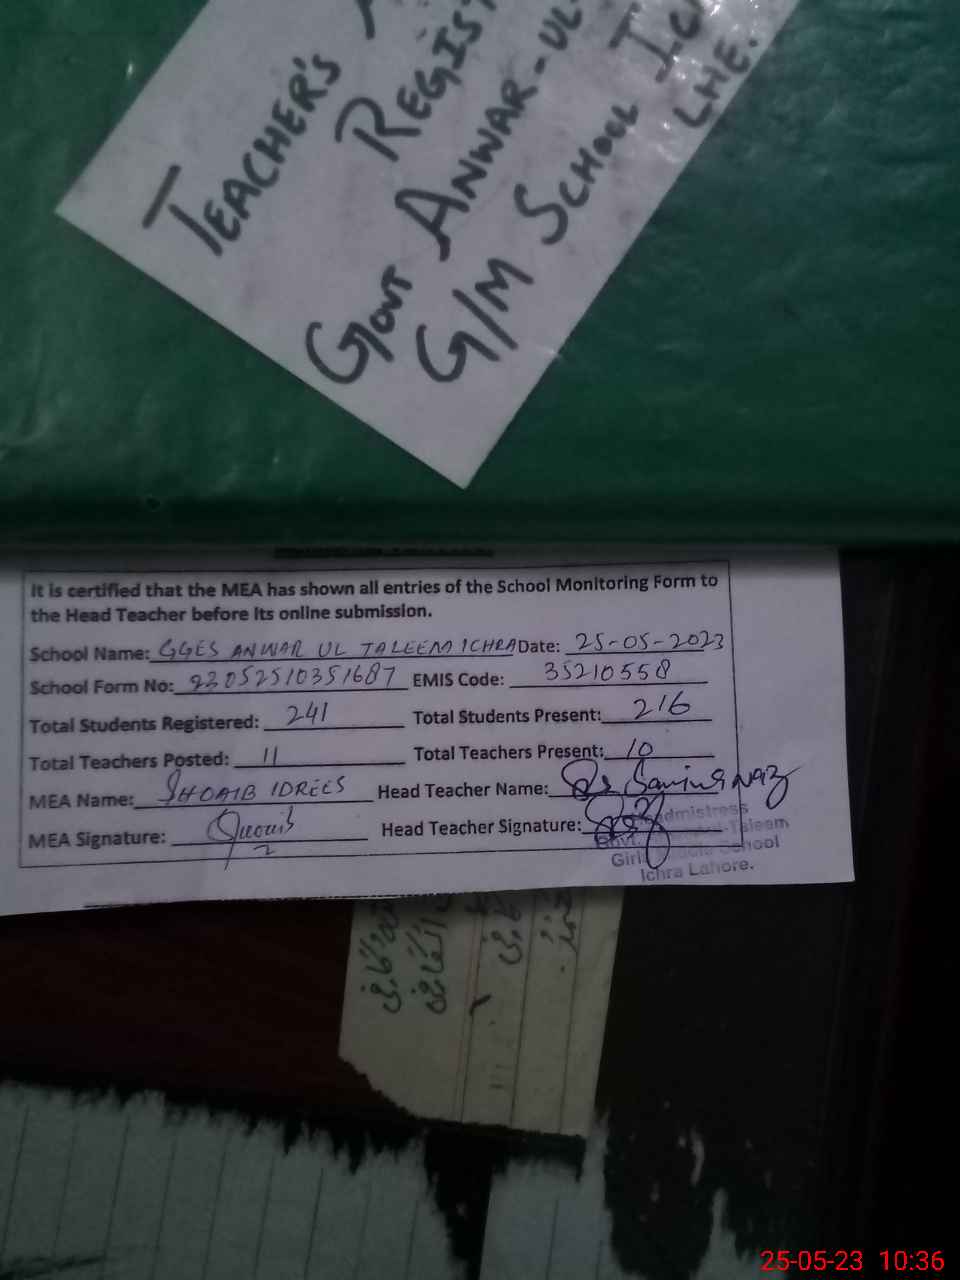 TEACHER'S
REGIST
GOVT ANWAR-UL-
G/M SCHOOL ICH
LHE.
It is certified that the MEA has shown all entries of the School Monitoring Form to
the Head Teacher before its online submission.
School Name: GGES ANWAR UL TALEEM ICHRA Date: 25-05-2023
School Form No: 23052510351687 EMIS Code: 35210558
Total Students Registered: 241 Total Students Present: 216
Total Teachers Posted: 11 Total Teachers Present: 10
MEA Name: SHOAIB IDREES Head Teacher Name: Naz
MEA Signature: Shoaib Head Teacher Signature:
admistress
Govt. -Taleem
Girls School
Ichra Lahore.
25-05-23 10:36